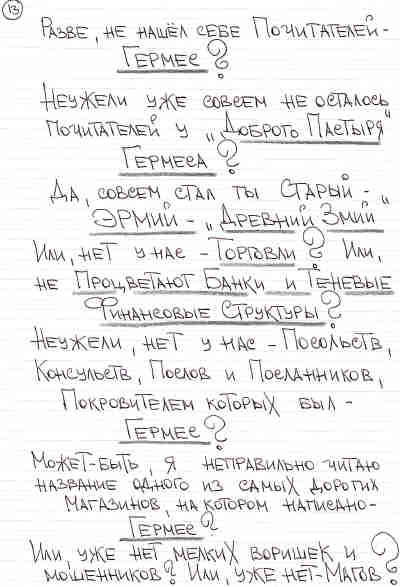 13
РАЗВЕ, НЕ НАШЁЛ СЕБЕ ПОЧИТАТЕЛЕЙ-
ГЕРМЕС?
НЕУЖЕЛИ УЖЕ СОВСЕМ НЕ ОСТАЛОСЬ
ПОЧИТАТЕЛЕЙ У „ДОБРОГО ПАСТЫРЯ"
ГЕРМЕСА?
ДА, СОВСЕМ СТАЛ ТЫ СТАРЫЙ -
ЭРМИЙ - „ДРЕВНИЙ ЗМИЙ"
ИЛИ, НЕТ У НАС - ТОРГОВЛИ? ИЛИ,
НЕ ПРОЦВЕТАЮТ БАНКИ И ТЕНЕВЫЕ
ФИНАНСОВЫЕ СТРУКТУРЫ?
НЕУЖЕЛИ, НЕТ У НАС - ПОСОЛЬСТВ,
КОНСУЛЬСТВ, ПОСЛОВ И ПОСЛАННИКОВ,
ПОКРОВИТЕЛЕМ КОТОРЫХ БЫЛ -
ГЕРМЕС?
МОЖЕТ-БЫТЬ, Я НЕПРАВИЛЬНО ЧИТАЮ
НАЗВАНИЕ ОДНОГО ИЗ САМЫХ ДОРОГИХ
МАГАЗИНОВ, НА КОТОРОМ НАПИСАНО-
ГЕРМЕС?
ИЛИ, УЖЕ НЕТ МЕЛКИХ ВОРИШЕК И
МОШЕННИКОВ? ИЛИ, УЖЕ НЕТ-МАГОВ?